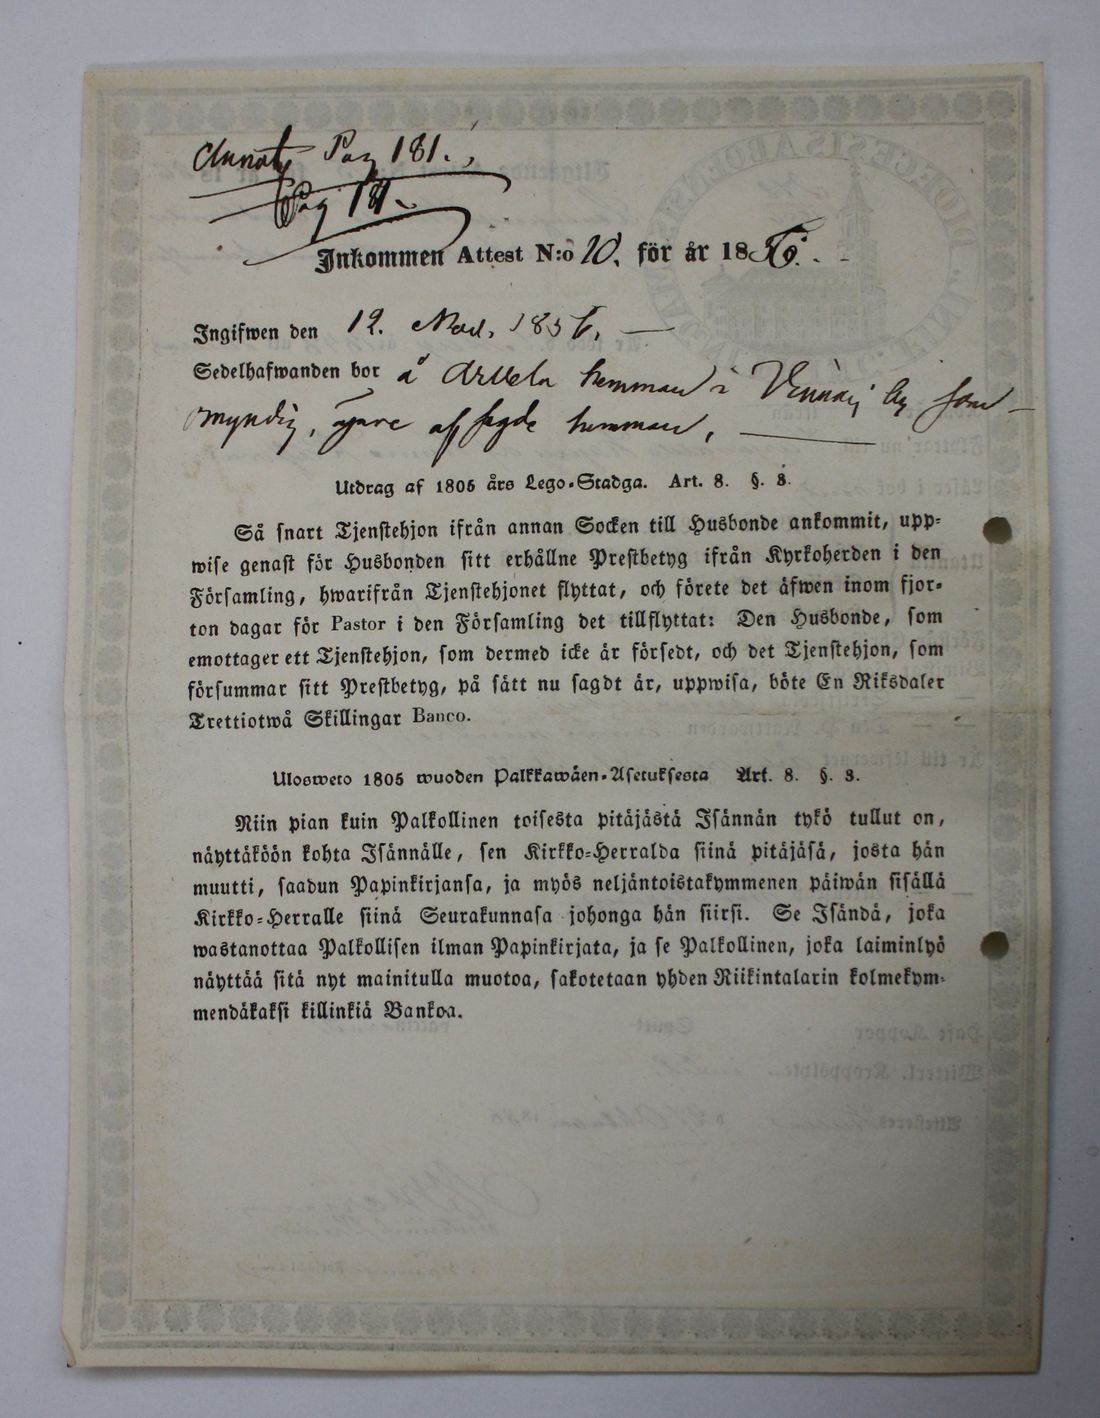 Pag 181.
Pag 181.
Inkommen Attest N:o 10. för år 1856.
Ingifwen den 12. Novl. 1856.
Sedelhafwanden bor å Arvela hemman i by som
myndig, ägare af sagde hemman,
Utdrag af 1805 års Lego-Stadga. Art. 8. §. 3.
Så snart Tjenstehjon ifrån annan Socken till Husbonde ankommit, upp-
wise genast för Husbonden sitt erhållne Prestbetyg ifrån Kyrkoherden i den
Församling, hwarifrån Tjenstehjonet flyttat, och förete det äfwen inom fjor-
ton dagar för Pastor i den Församling det tillflyttat: Den Husbonde, som
emottager ett Tjenstehjon, som dermed icke är försedt, och det Tjenstehjon, som
försummar sitt Prestbetyg, på sätt nu sagdt är, uppwisa, böte En Riksdaler
Trettiotwå Skillingar Banco.
Ulosweto 1805 wuoden Palkkawäen-Asetuksesta Art. 8. §. 3.
Niin pian kuin Palkollinen toisesta pitäjästä Isännän tykö tullut on,
näyttäköön kohta Isännälle, sen Kirkko-Herralda siinä pitäjäsä, josta hän
muutti, saadun Papinkirjansa, ja myös neljäntoistakymmenen päiwän sisällä
Kirkko-Herralle siinä Seurakunnasa johonga hän siirsi. Se Isändä, joka
wastanottaa Palkollisen ilman Papinkirjata, ja se Palkollinen, joka laiminlyö
näyttää sitä nyt mainitulla muotoa, sakotetaan yhden Riikintalarin kolmekym-
mendäkaksi killinkiä Bankoa.